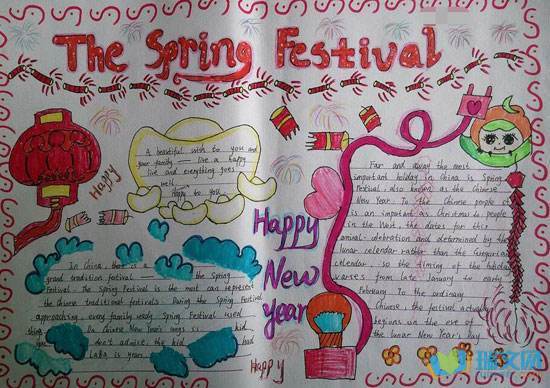 The Spring Festival
A beautiful wish to you and
your family —— live a happy
list and everything goes
well.
happy to you
Happy
In China, there is a
grand tradition festival —— the Spring
Festival. The Spring Festival is the most can represent
the Chinese traditional festivals. During the Spring Festival
approaching every family ready Spring Festival used
thing Da Chinese New Year's songs is kid
don't admire, the kid had
LaBa is years
Happy
New
year
Happy
Far and away the most
important holiday in China is Spring
Festival, also known as the Chinese
New Year. To the Chinese people it
is an impotant as Christmas to people
in the West. the dates for this
annual celebration and determined by the
lunar calendar rather than the Gregorian
calendar, so the timing of the holiday
varies from late January to early
February. To the ordinary
Chinese, the festival actually
begins on the eve of
the lunar New Year's Day